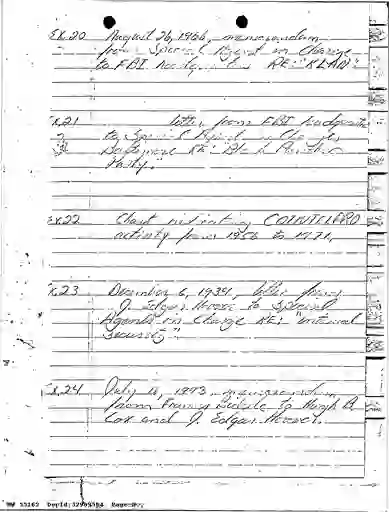 Ex.20 August 26, 1966, memorandum
from Special Agent in Charge
to FBI headquarters RE: "KLAN"
Ex.21 letter from FBI headquarters
to Special Agent in Charge,
RE: Black Panther
Party."
Ex.22 Chart COINTELPRO
activity from 1956 to 1971,
Ex.23 December 6, 1939, letter from
J. Edgar Hoover to Special
Agents in Charge RE: "internal
security".
Ex.24 July memorandum
from Francis Biddle to Hugh B.
Cox and J. Edgar Hoover.
NW 55162 DocId:32989594